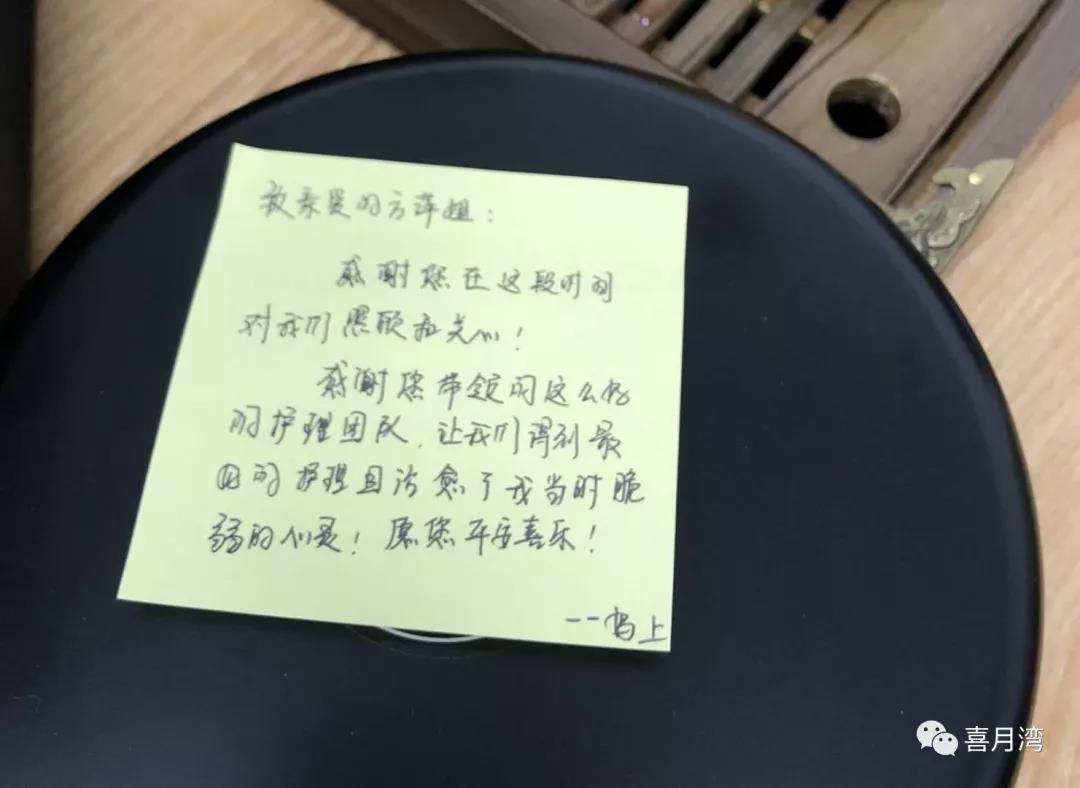 敬亲爱的方萍姐：
感谢您在这段时间
对我们照顾和关心！
感谢您带领的这么好
的护理团队，让我们得到最
的护理且治愈了我当时脆
弱的心灵！愿您平安喜乐！
——上
喜月湾